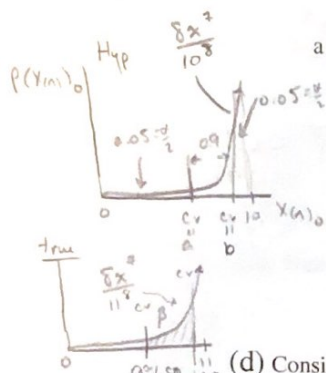 Hyp
8x⁷
10⁸
a
P(X(n))₀
0.05=α/2
0.9
0.05=α/2
0
cv
cv
10
X(n)₀
"
"
a
b
true
8x⁷
11⁸
cv
cv
β
0
11
(d) Consi